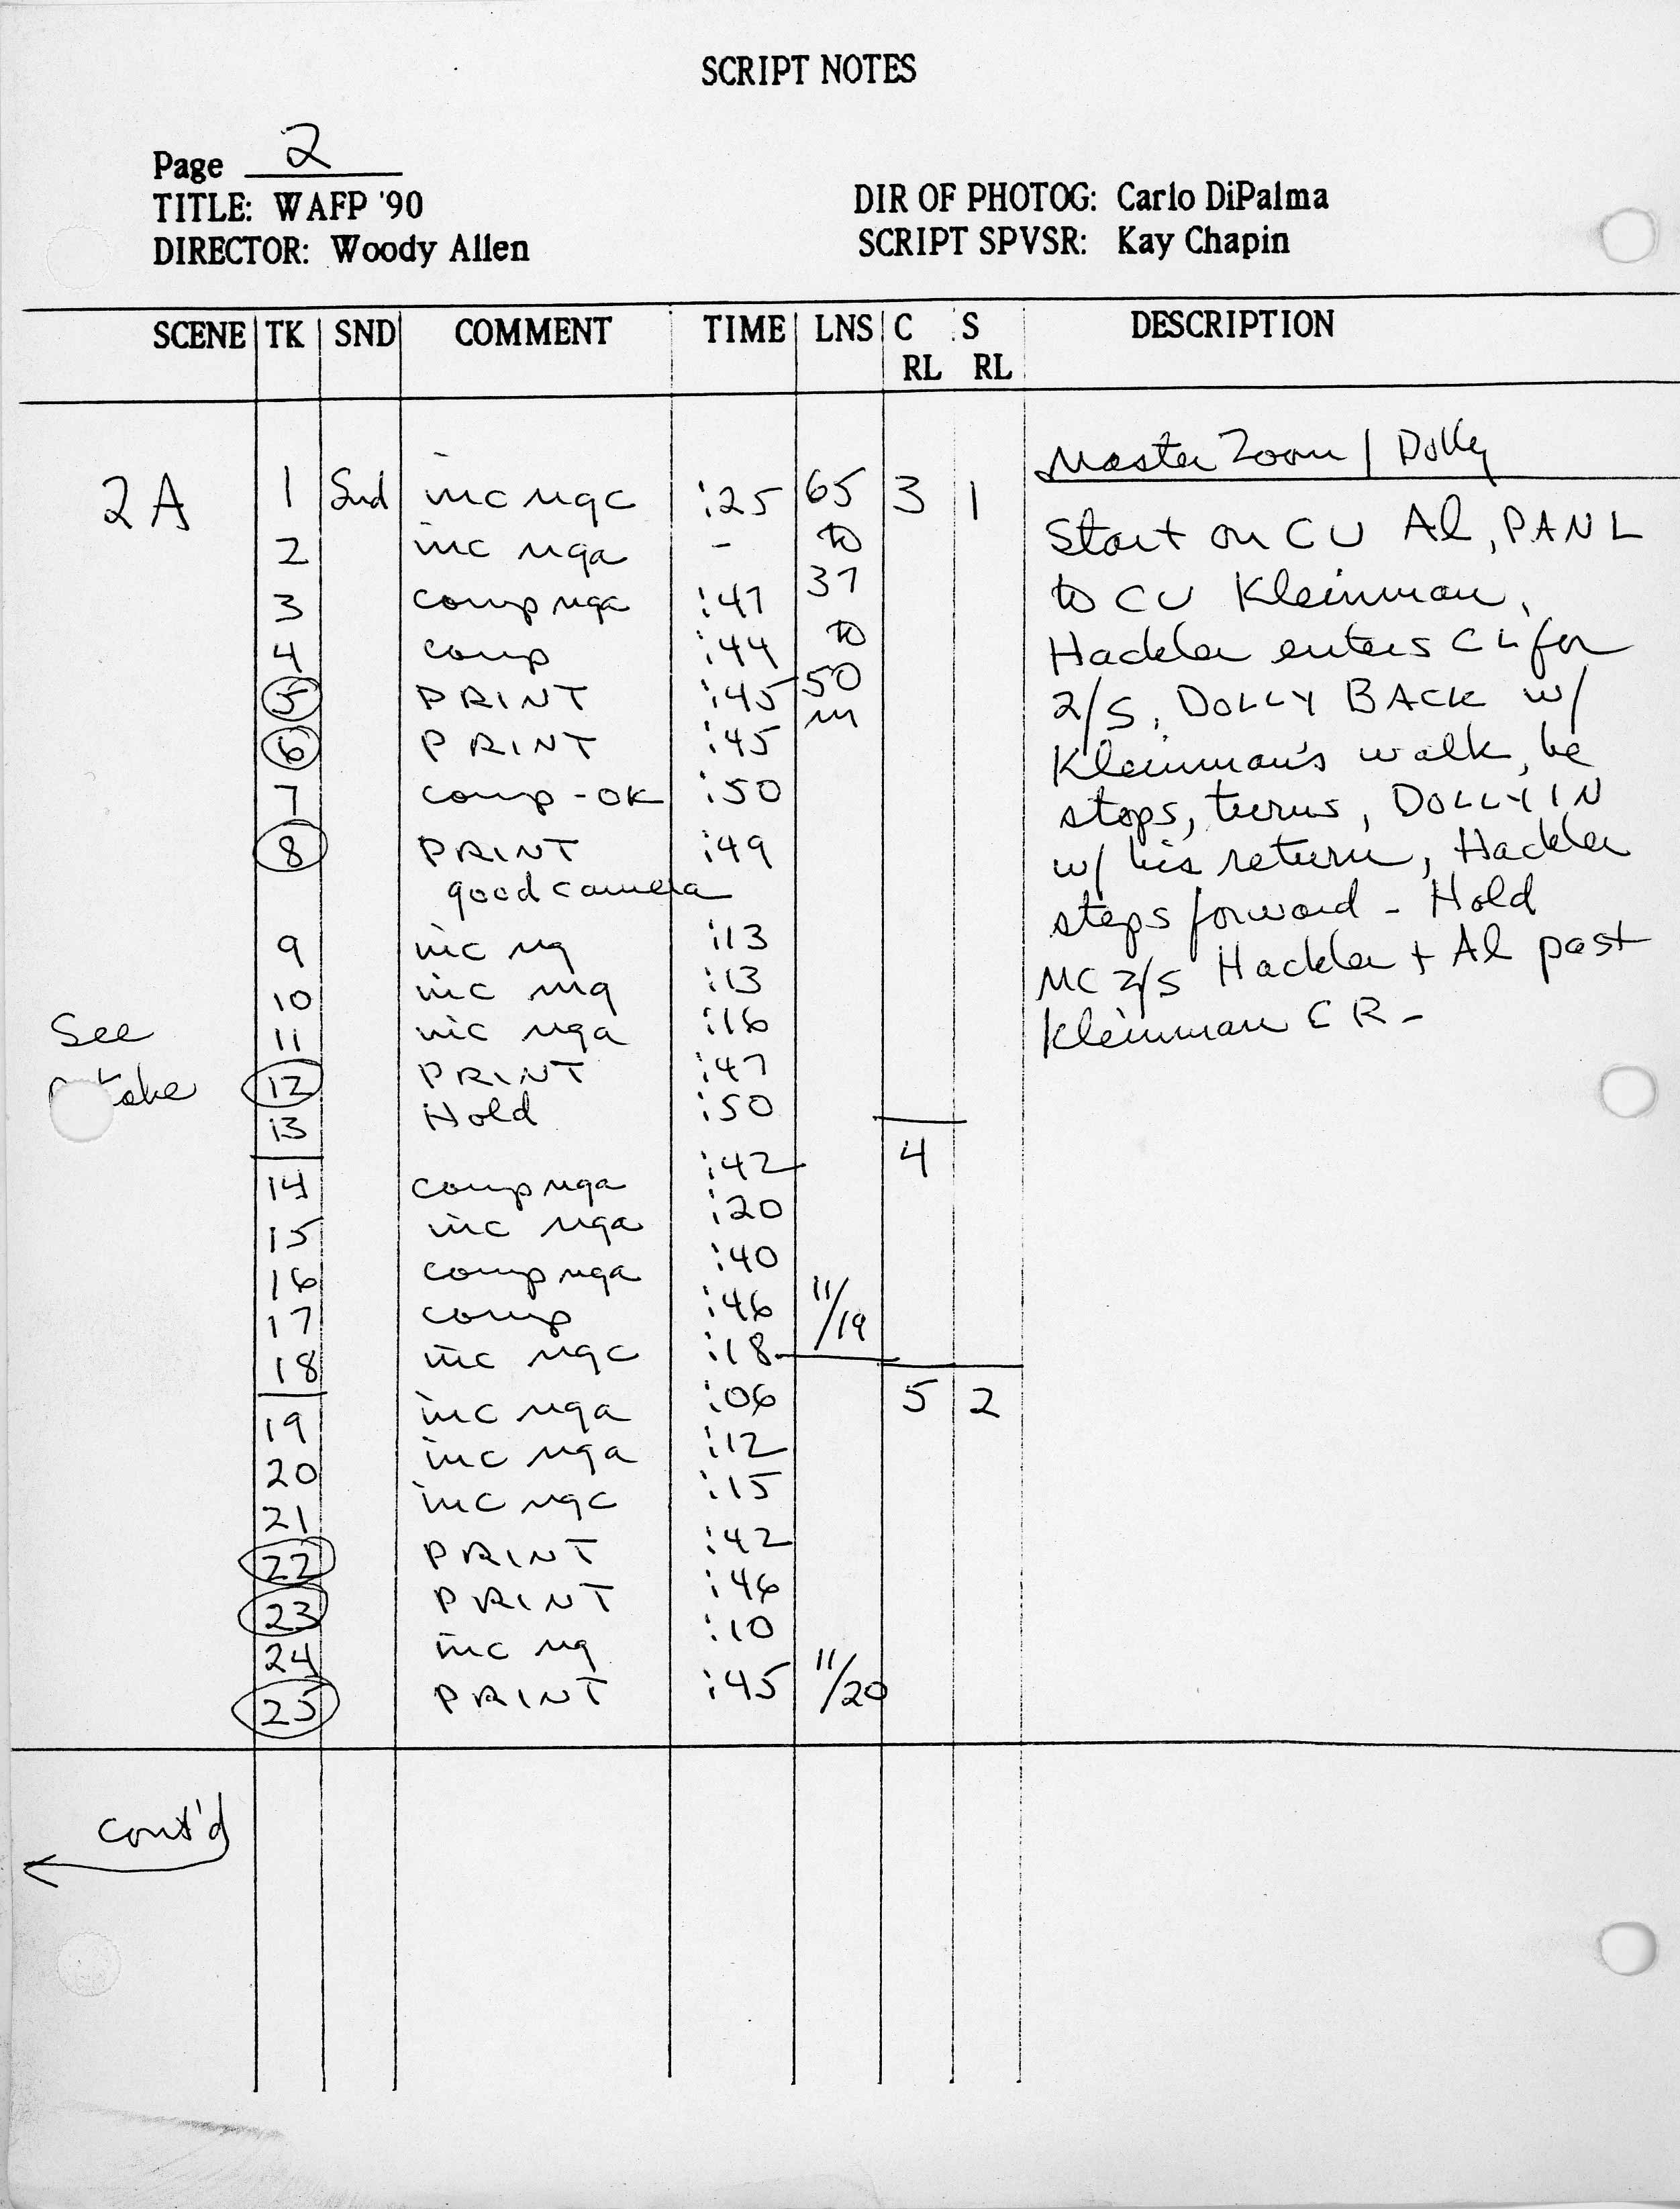 SCRIPT NOTES
Page 2
TITLE: WAFP '90
DIRECTOR: Woody Allen
DIR OF PHOTOG: Carlo DiPalma
SCRIPT SPVSR: Kay Chapin
SCENE TK SND COMMENT TIME LNS C RL S RL DESCRIPTION
Master Zoom / Dolly
2A 1 Snd inc ngc :25 65 3 1
2 inc nga - to
3 comp nga :47 37
4 comp :44 to
5 PRINT :45 50
6 PRINT :45 m
7 comp - OK :50
8 PRINT :49
good camera
9 inc ng :13
10 inc ng :13
11 inc nga :16
12 PRINT :47
13 Hold :50
14 comp nga :42 4
15 inc nga :20
16 comp nga :40
17 comp :46 11/19
18 inc ngc :18
19 inc nga :06 5 2
20 inc nga :12
21 inc ngc :15
22 PRINT :42
23 PRINT :46
24 inc ng :10
25 PRINT :45 11/20
Start on CU Al, PAN L
to CU Kleinman,
Hackler enters CL for
2/S, DOLLY BACK w/
Kleinman's walk, he
stops, turns, DOLLY IN
w/ his return, Hackler
steps forward - Hold
MC 2/S Hackler + Al past
Kleinman CR -
See
cont'd